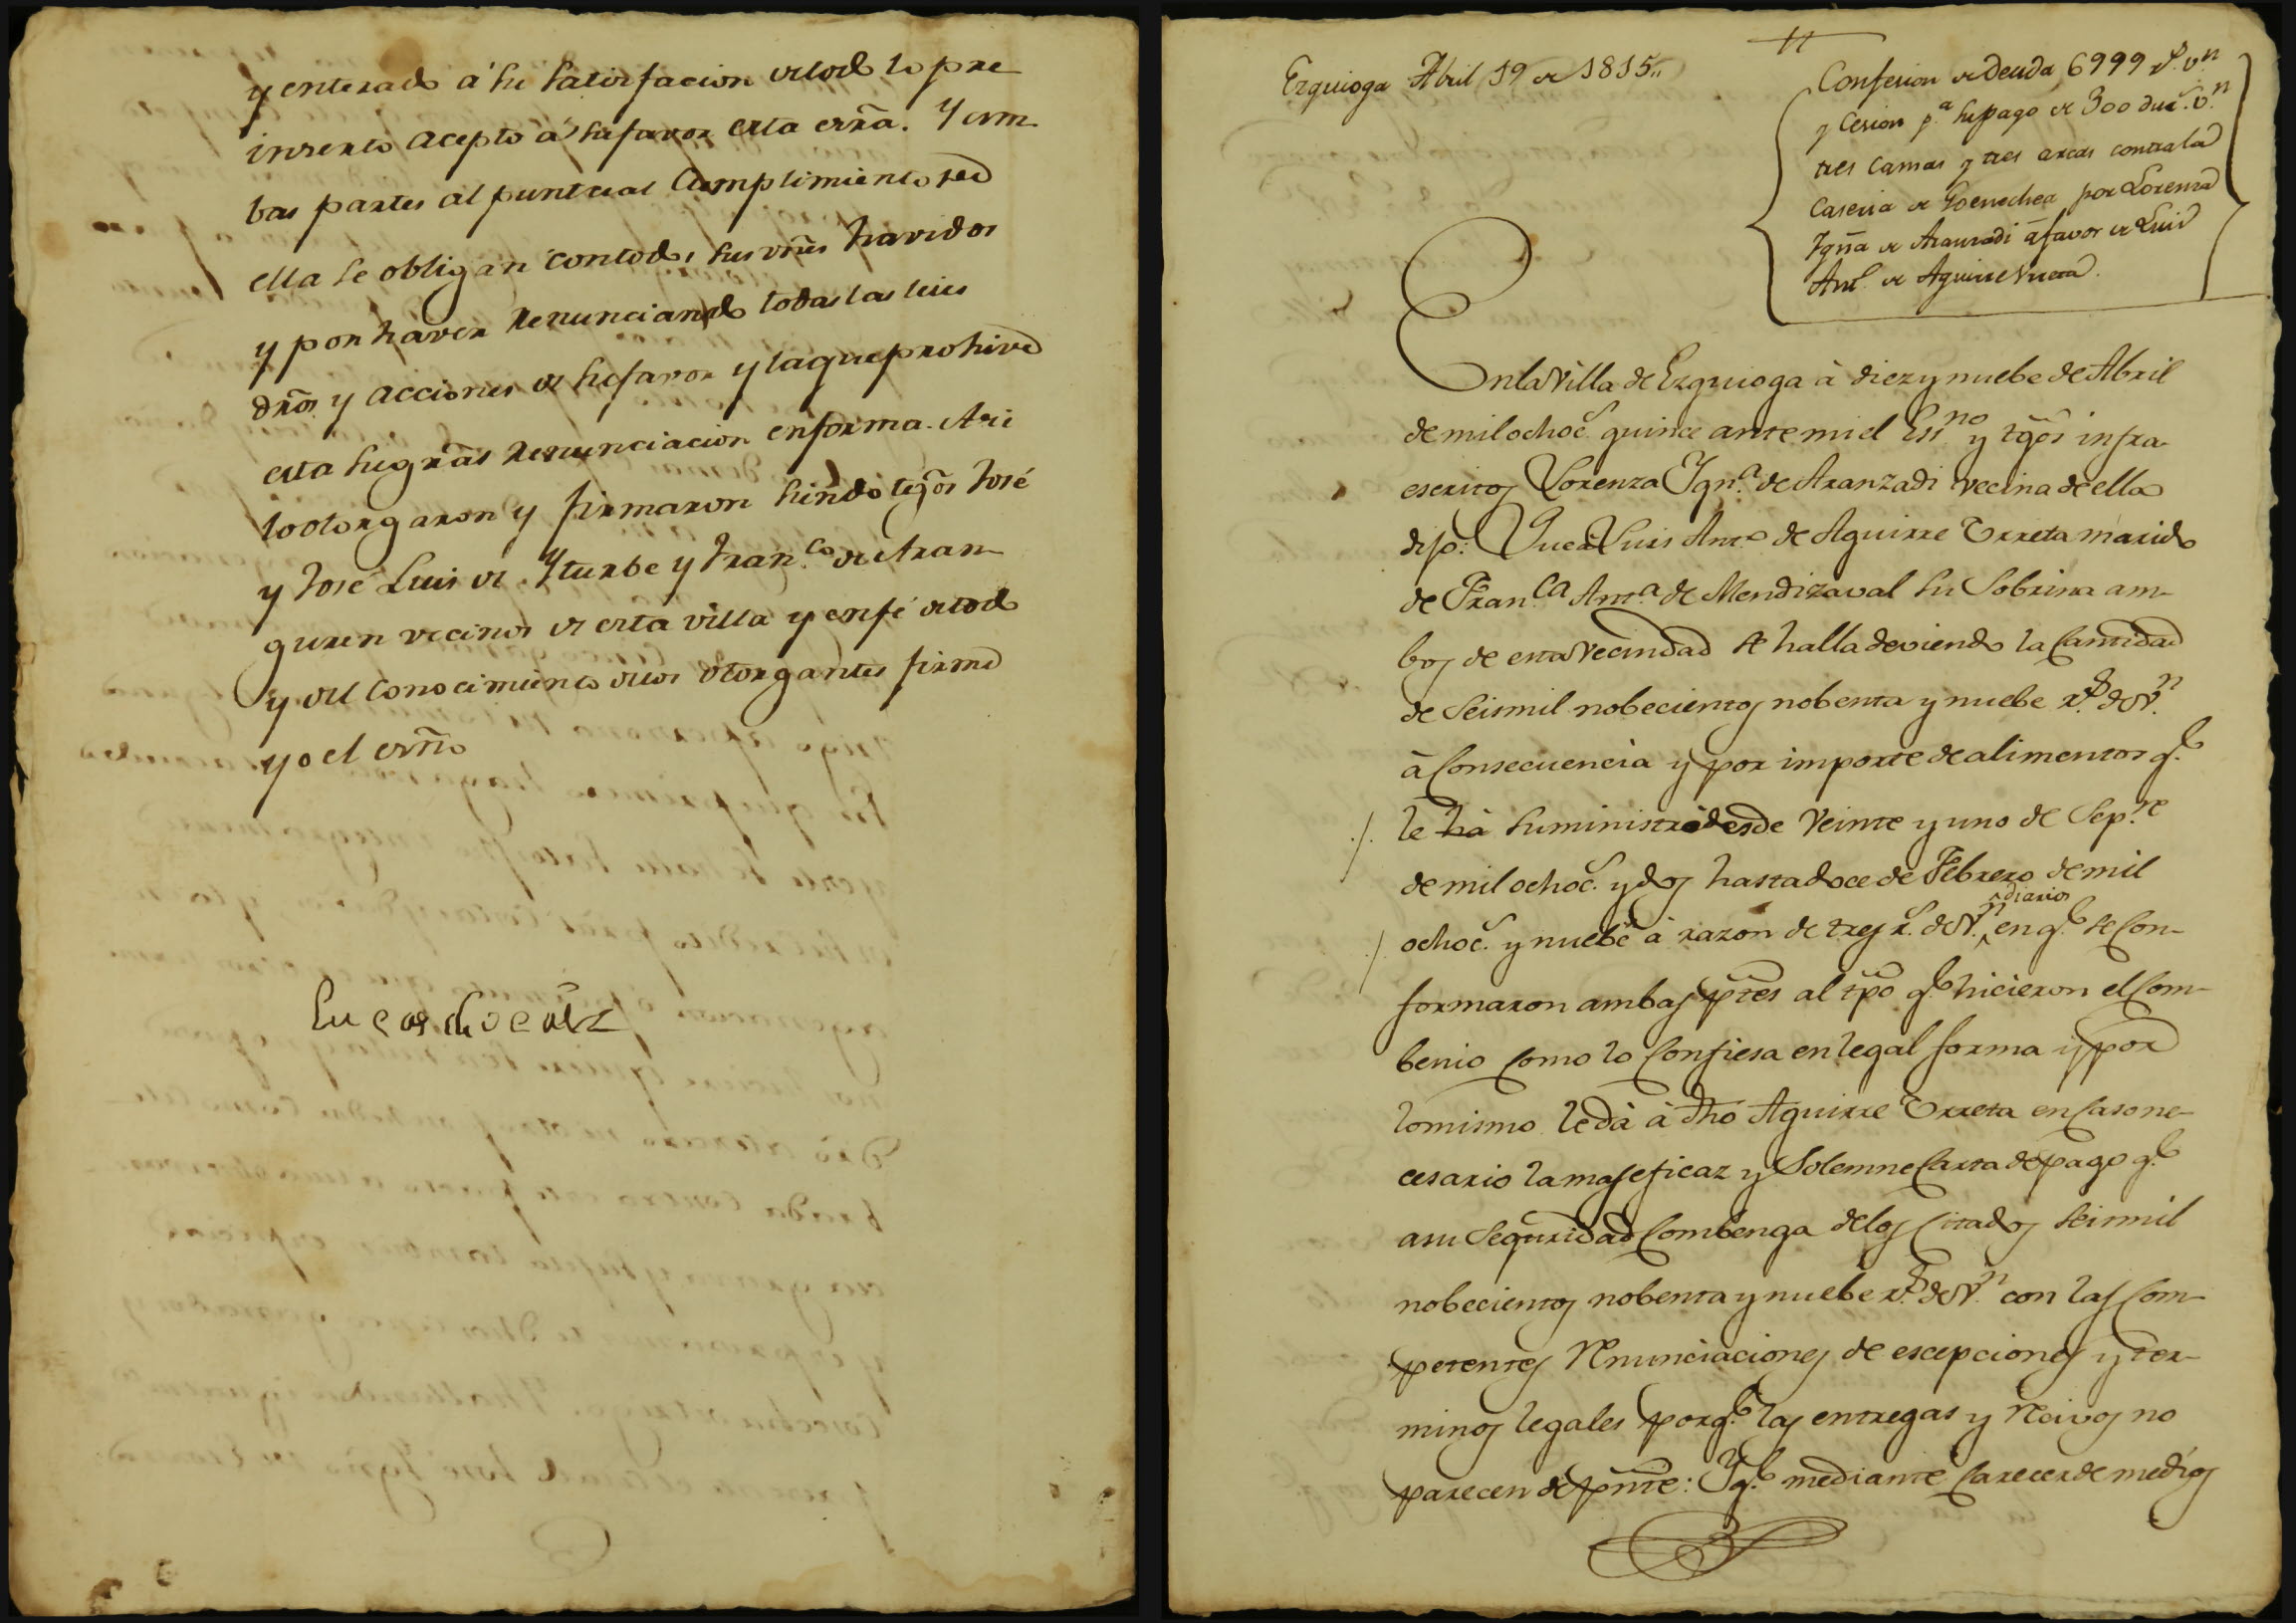 y enterado á su satisfacion de todo lo pre
inserto acepto á su favor esta esrã. Y am-
bas partes al puntual cumplimiento de
ella se obligan con todos sus vnẽs havidos
y por haver renunciando todas las leies
dr̃os y acciones de su favor y la que prohive
esta su gr̃al renunciacion en forma. Asi
lo otorgaron y firmaron siendo tgõs José
y José Luis de Yturbe y Fran.co de Aran-
guren vecinos de esta villa y en fé de todo
y del conocimiento de los otorgantes firmé
yo el esrñ̃o
Ezquioga Abril 19 de 1815..
Confesion de deuda 6999 rs. v.n
y cesion p.a su pago de 300 duc.s v.n
tres camas y tres arcas contra la
caseria de Goenechea por Lorenza
Ygña de Aranzadi á favor de Luis
Ant.o de Aguirre Urreta.
En la Villa de Ezquioga à diez y nuebe de Abril
de mil ochoc.s quince ante mi el Ess.no y tgõs infra-
escritos Lorenza Ygn.a de Aranzadi vecina de ella
dijo: Que à Luis Ant.o de Aguirre Urreta marido
de Fran.ca Ant.a de Mendizaval su Sobrina am-
bos de esta vecindad se halla deviendo la Cantidad
de Seis mil nobecientos nobenta y nuebe r.s de V.n
à Consecuencia y por importe de alimentos q.e
le hà suministrado desde Veinte y uno de Sep.re
de mil ochoc.s y dos hasta doce de Febrero de mil
ochoc.s y nuebe à razon de tres r.s de V.n diarios en q.e se Con-
formaron ambas ptẽs al tpõ q.e hicieron el Com-
benio Como lo Confiesa en legal forma y por
lo mismo le dà à dhõ Aguirre Urreta en Caso ne-
cesario la mas eficaz y Solemne Carta de pago q.e
a su Seguridad Combenga de los Citados Seis mil
nobecientos nobenta y nuebe r.s de V.n con las Com-
petentes Renunciaciones de escepciones y ter-
minos legales por q.e las entregas y Recivos no
parecen de pñte: Y q.e mediante Carecer de medios